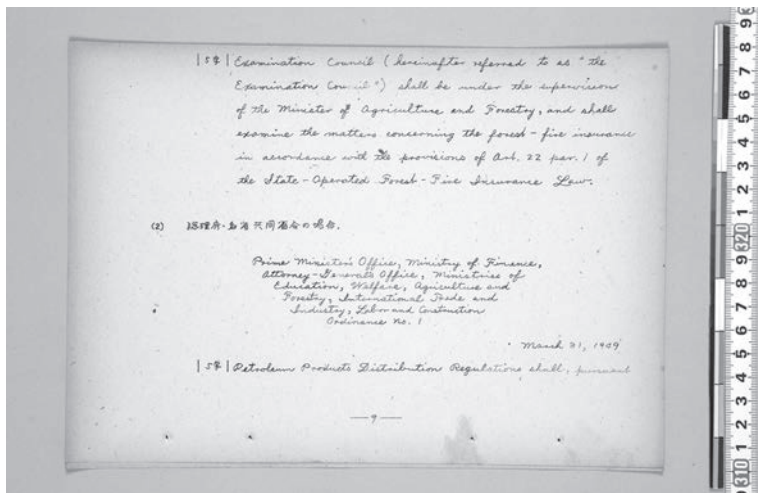 |5字| Examination Council (hereinafter referred to as "the
Examination Council") shall be under the supervision
of the Minister of Agriculture and Forestry, and shall
examine the matters concerning the forest-fire insurance
in accordance with the provisions of Art. 22 par. 1 of
the State-Operated Forest-Fire Insurance Law.
(2) 総理府・各省共同省令の場合.
Prime Minister's Office, Ministry of Finance,
Attorney-General's Office, Ministries of
Education, Welfare, Agriculture and
Forestry, International Trade and
Industry, Labor and Construction
Ordinance No. 1
March 31, 1949
|5字| Petroleum Products Distribution Regulations shall, pursuant
—9—